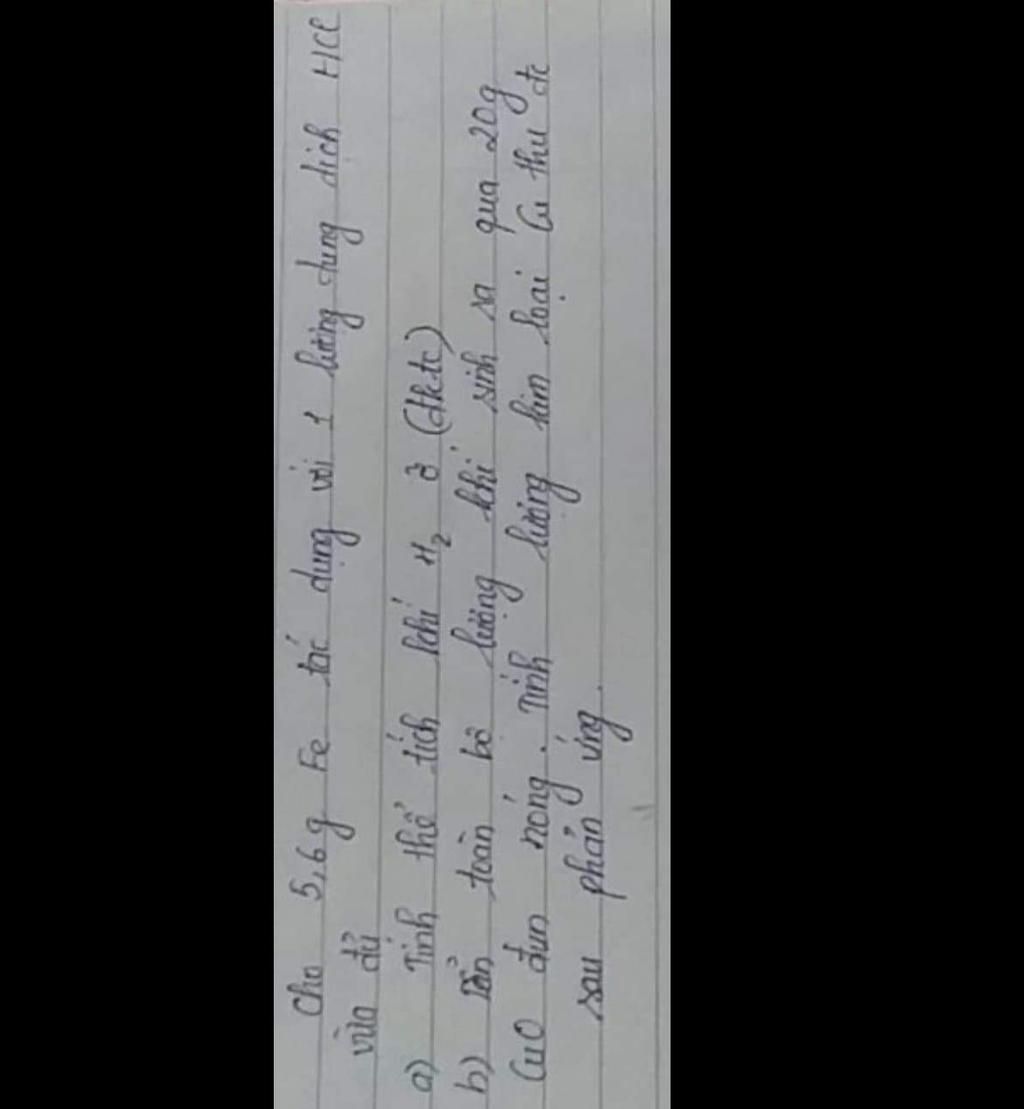 Cho 5,6g Fe tác dụng với 1 lượng dung dịch HCl
vừa đủ
a) Tính thể tích khí H₂ ở (đktc)
b) Dẫn toàn bô lượng khí sinh ra qua 20g
CuO đun nóng. Tính lượng kim loại Cu thu đc
sau phản ứng.